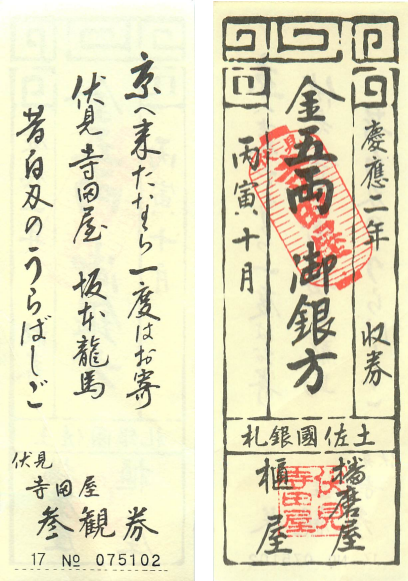 京へ来たなら一度はお寄
伏見寺田屋 坂本龍馬
昔白刃のうらばしご
伏見
寺田屋
参観券
17 No 075102
慶應二年 収券
金五両 御銀方
丙寅十月
伏見
寺田屋
土佐國銀札
播磨屋
櫃屋
伏見
寺田屋